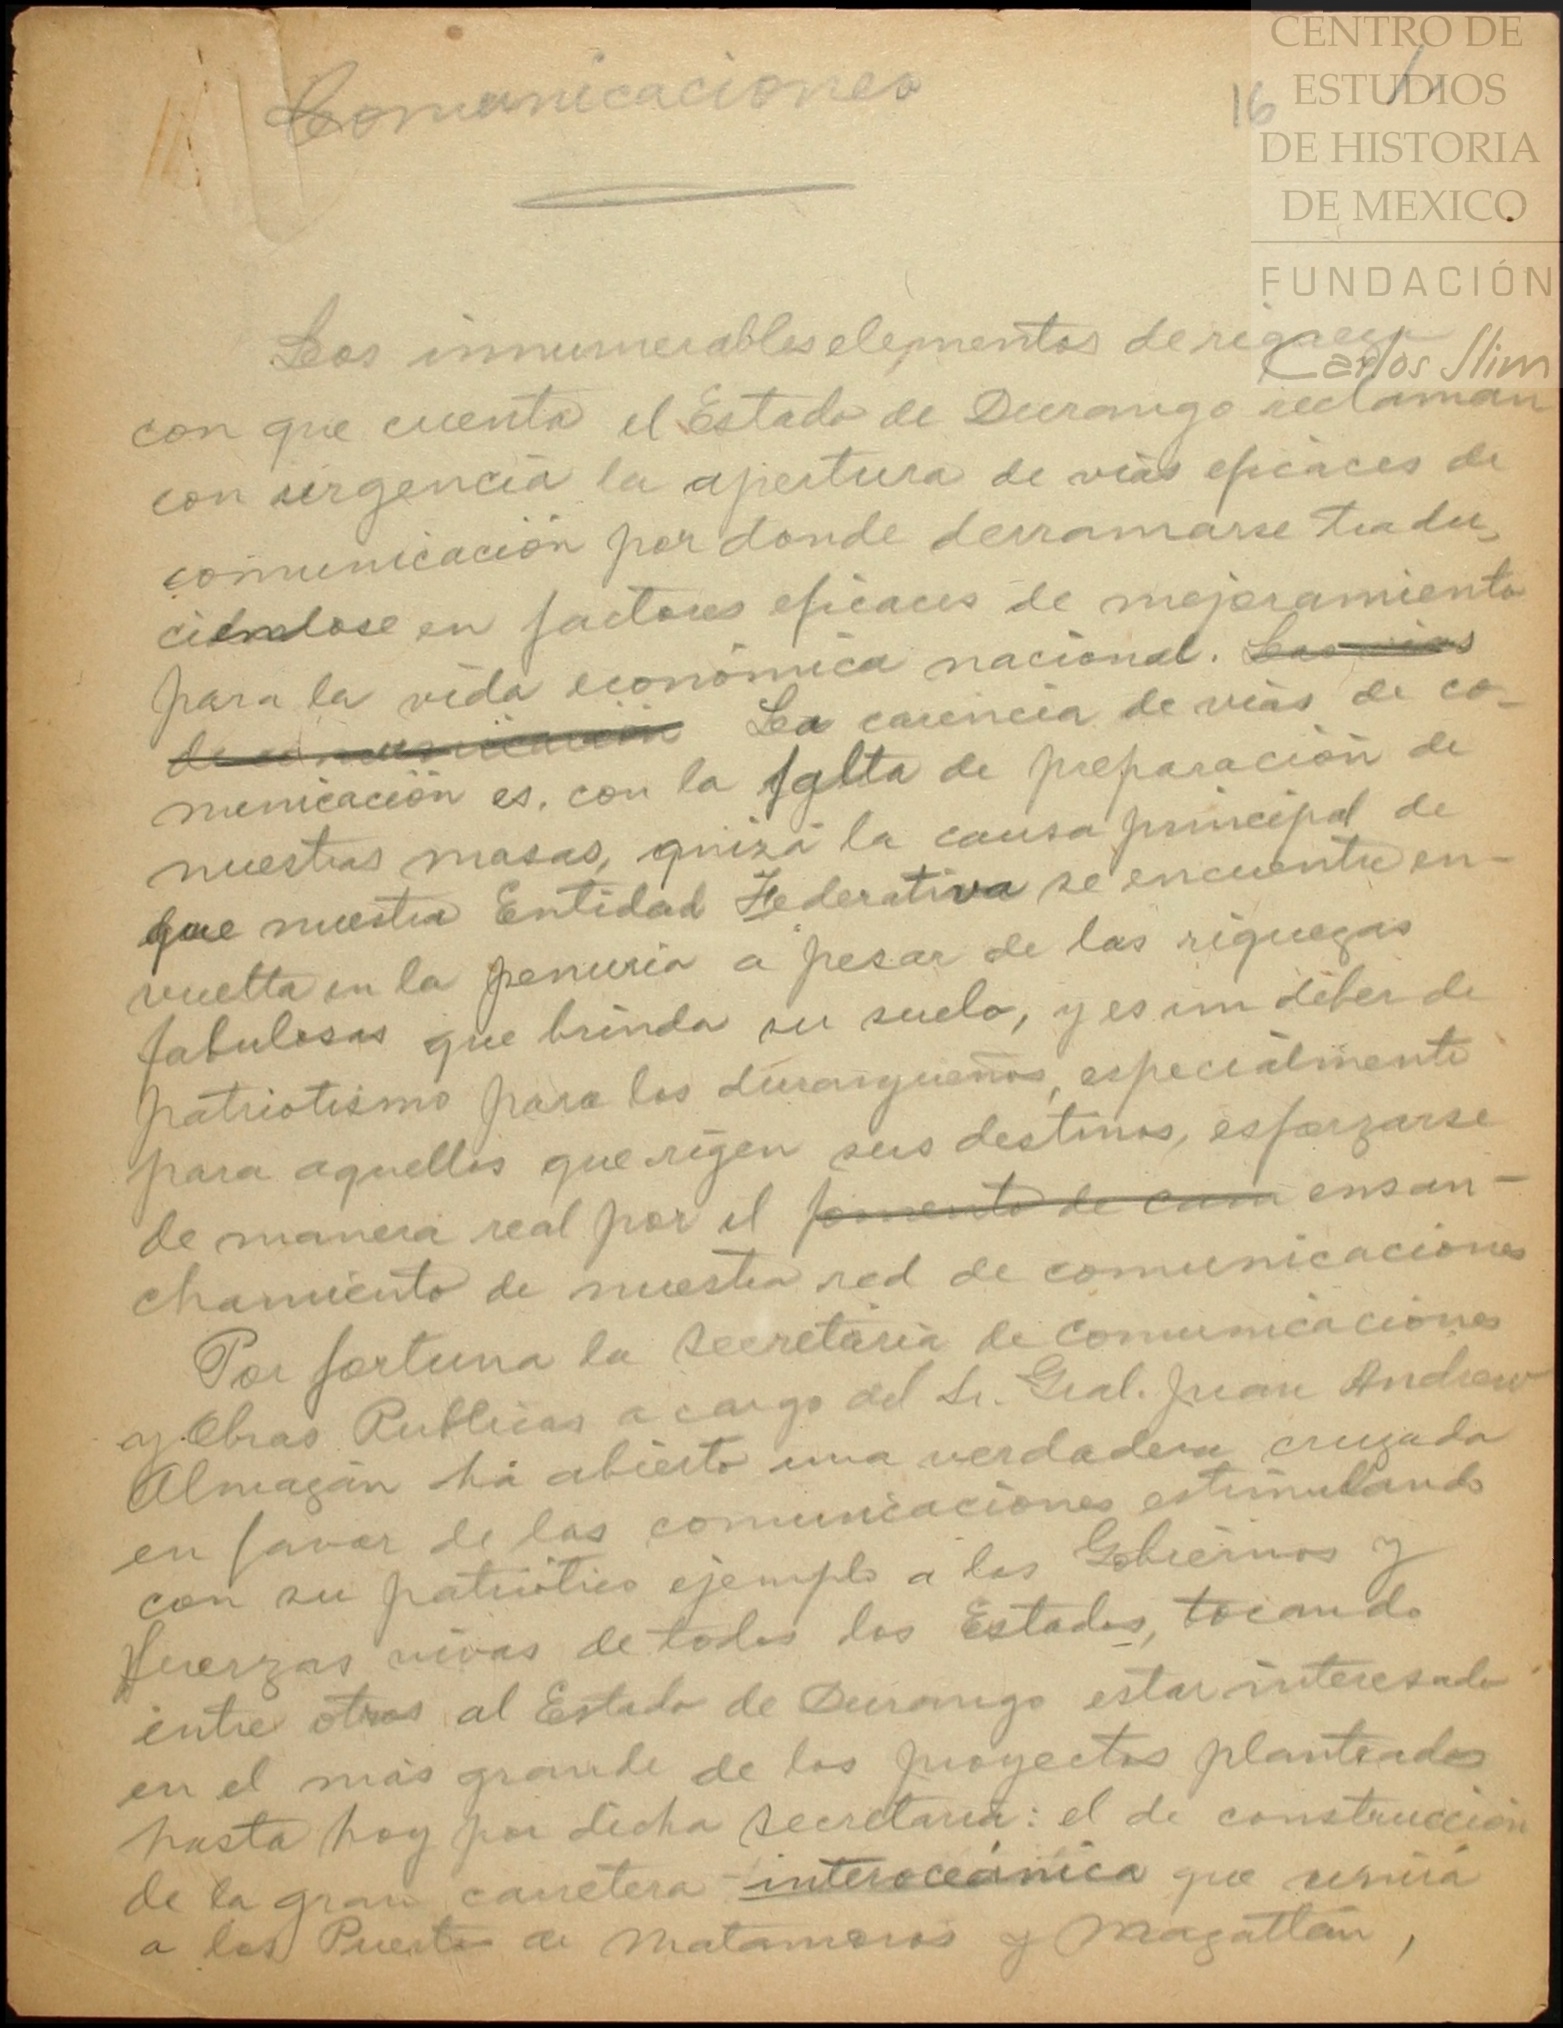 Comunicaciones
16
CENTRO DE
ESTUDIOS
DE HISTORIA
DE MEXICO
FUNDACIÓN
Carlos Slim
Los innumerables elementos de riqueza
con que cuenta el Estado de Durango reclaman
con urgencia la apertura de vias eficaces de
comunicación por donde derramarse tradu-
ciendose en factores eficaces de mejoramiento
para la vida económica nacional. Las vias
de comunicación La carencia de vias de co-
municación es, con la falta de preparación de
nuestras masas, quizá la causa principal de
que nuestra Entidad Federativa se encuentre en-
vuelta en la penuria a pesar de las riquezas
fabulosas que brinda su suelo, y es un deber de
patriotismo para los durangueños, especialmente
para aquellos que rigen sus destinos, esforzarse
de manera real por el fomento de cam ensan-
chamiento de nuestra red de comunicaciones
Por fortuna la Secretaria de Comunicaciones
y Obras Publicas a cargo del Sr. Gral. Juan Andrew
Almazán há abierto una verdadera cruzada
en favor de las comunicaciones estimulando
con su patriótico ejemplo a los Gobiernos y
fuerzas vivas de todos los Estados, tocando
entre otros al Estado de Durango estar interesado
en el más grande de los proyectos planteados
hasta hoy por dicha Secretaria: el de construcción
de la gran carretera interoceánica que unirá
a los Puertos de Matamoros y Mazatlán,